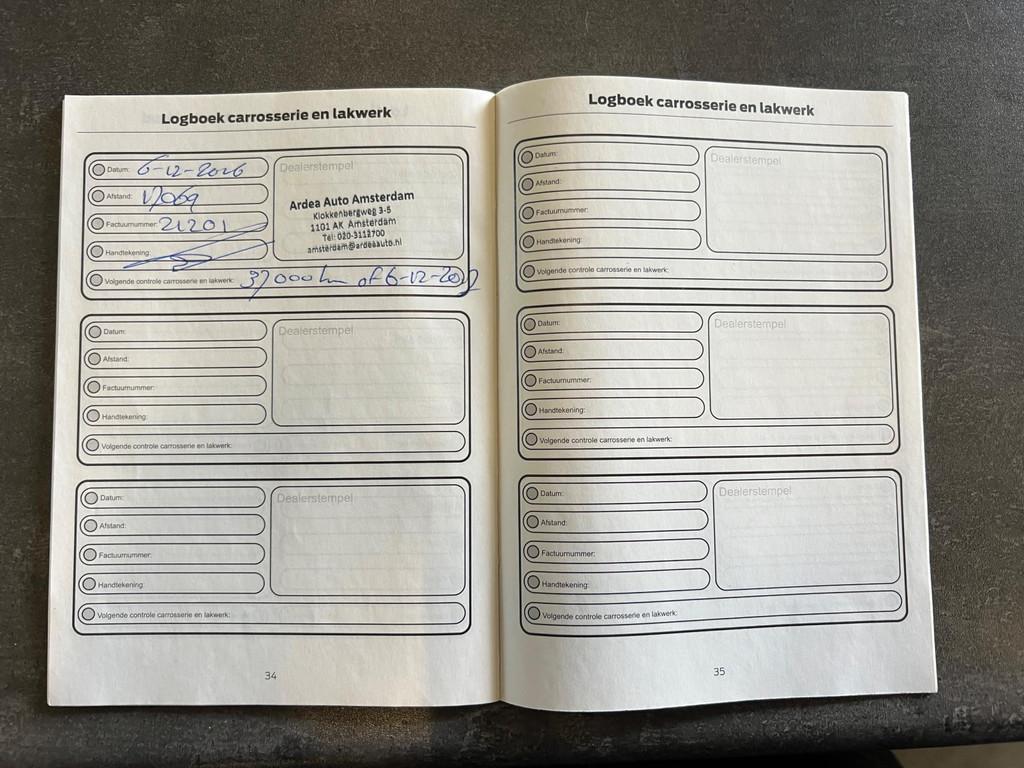 Logboek carrosserie en lakwerk
Datum: 6-12-2016
Afstand: 17069
Factuurnummer: 21201
Handtekening:
Dealerstempel
Ardea Auto Amsterdam
Klokkenbergweg 3-5
1101 AK Amsterdam
Tel: 020-3112700
amsterdam@ardeaauto.nl
Volgende controle carrosserie en lakwerk: 37000 km of 6-12-2017
Datum:
Afstand:
Factuurnummer:
Handtekening:
Dealerstempel
Volgende controle carrosserie en lakwerk:
Datum:
Afstand:
Factuurnummer:
Handtekening:
Dealerstempel
Volgende controle carrosserie en lakwerk:
34
Logboek carrosserie en lakwerk
Datum:
Afstand:
Factuurnummer:
Handtekening:
Dealerstempel
Volgende controle carrosserie en lakwerk:
Datum:
Afstand:
Factuurnummer:
Handtekening:
Dealerstempel
Volgende controle carrosserie en lakwerk:
Datum:
Afstand:
Factuurnummer:
Handtekening:
Dealerstempel
Volgende controle carrosserie en lakwerk:
35